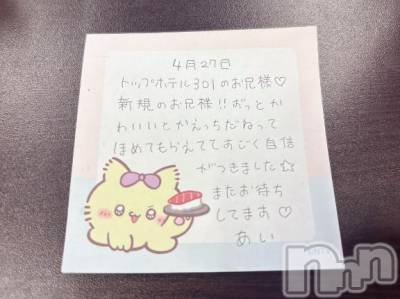 4月27日
トップホテル301のお兄様♡
新規のお兄様!!おっとか
わいいとかえっちだねって
ほめてもらえてすごく自信
がつきました☆
またお待ち
してます♡
あい
nnn